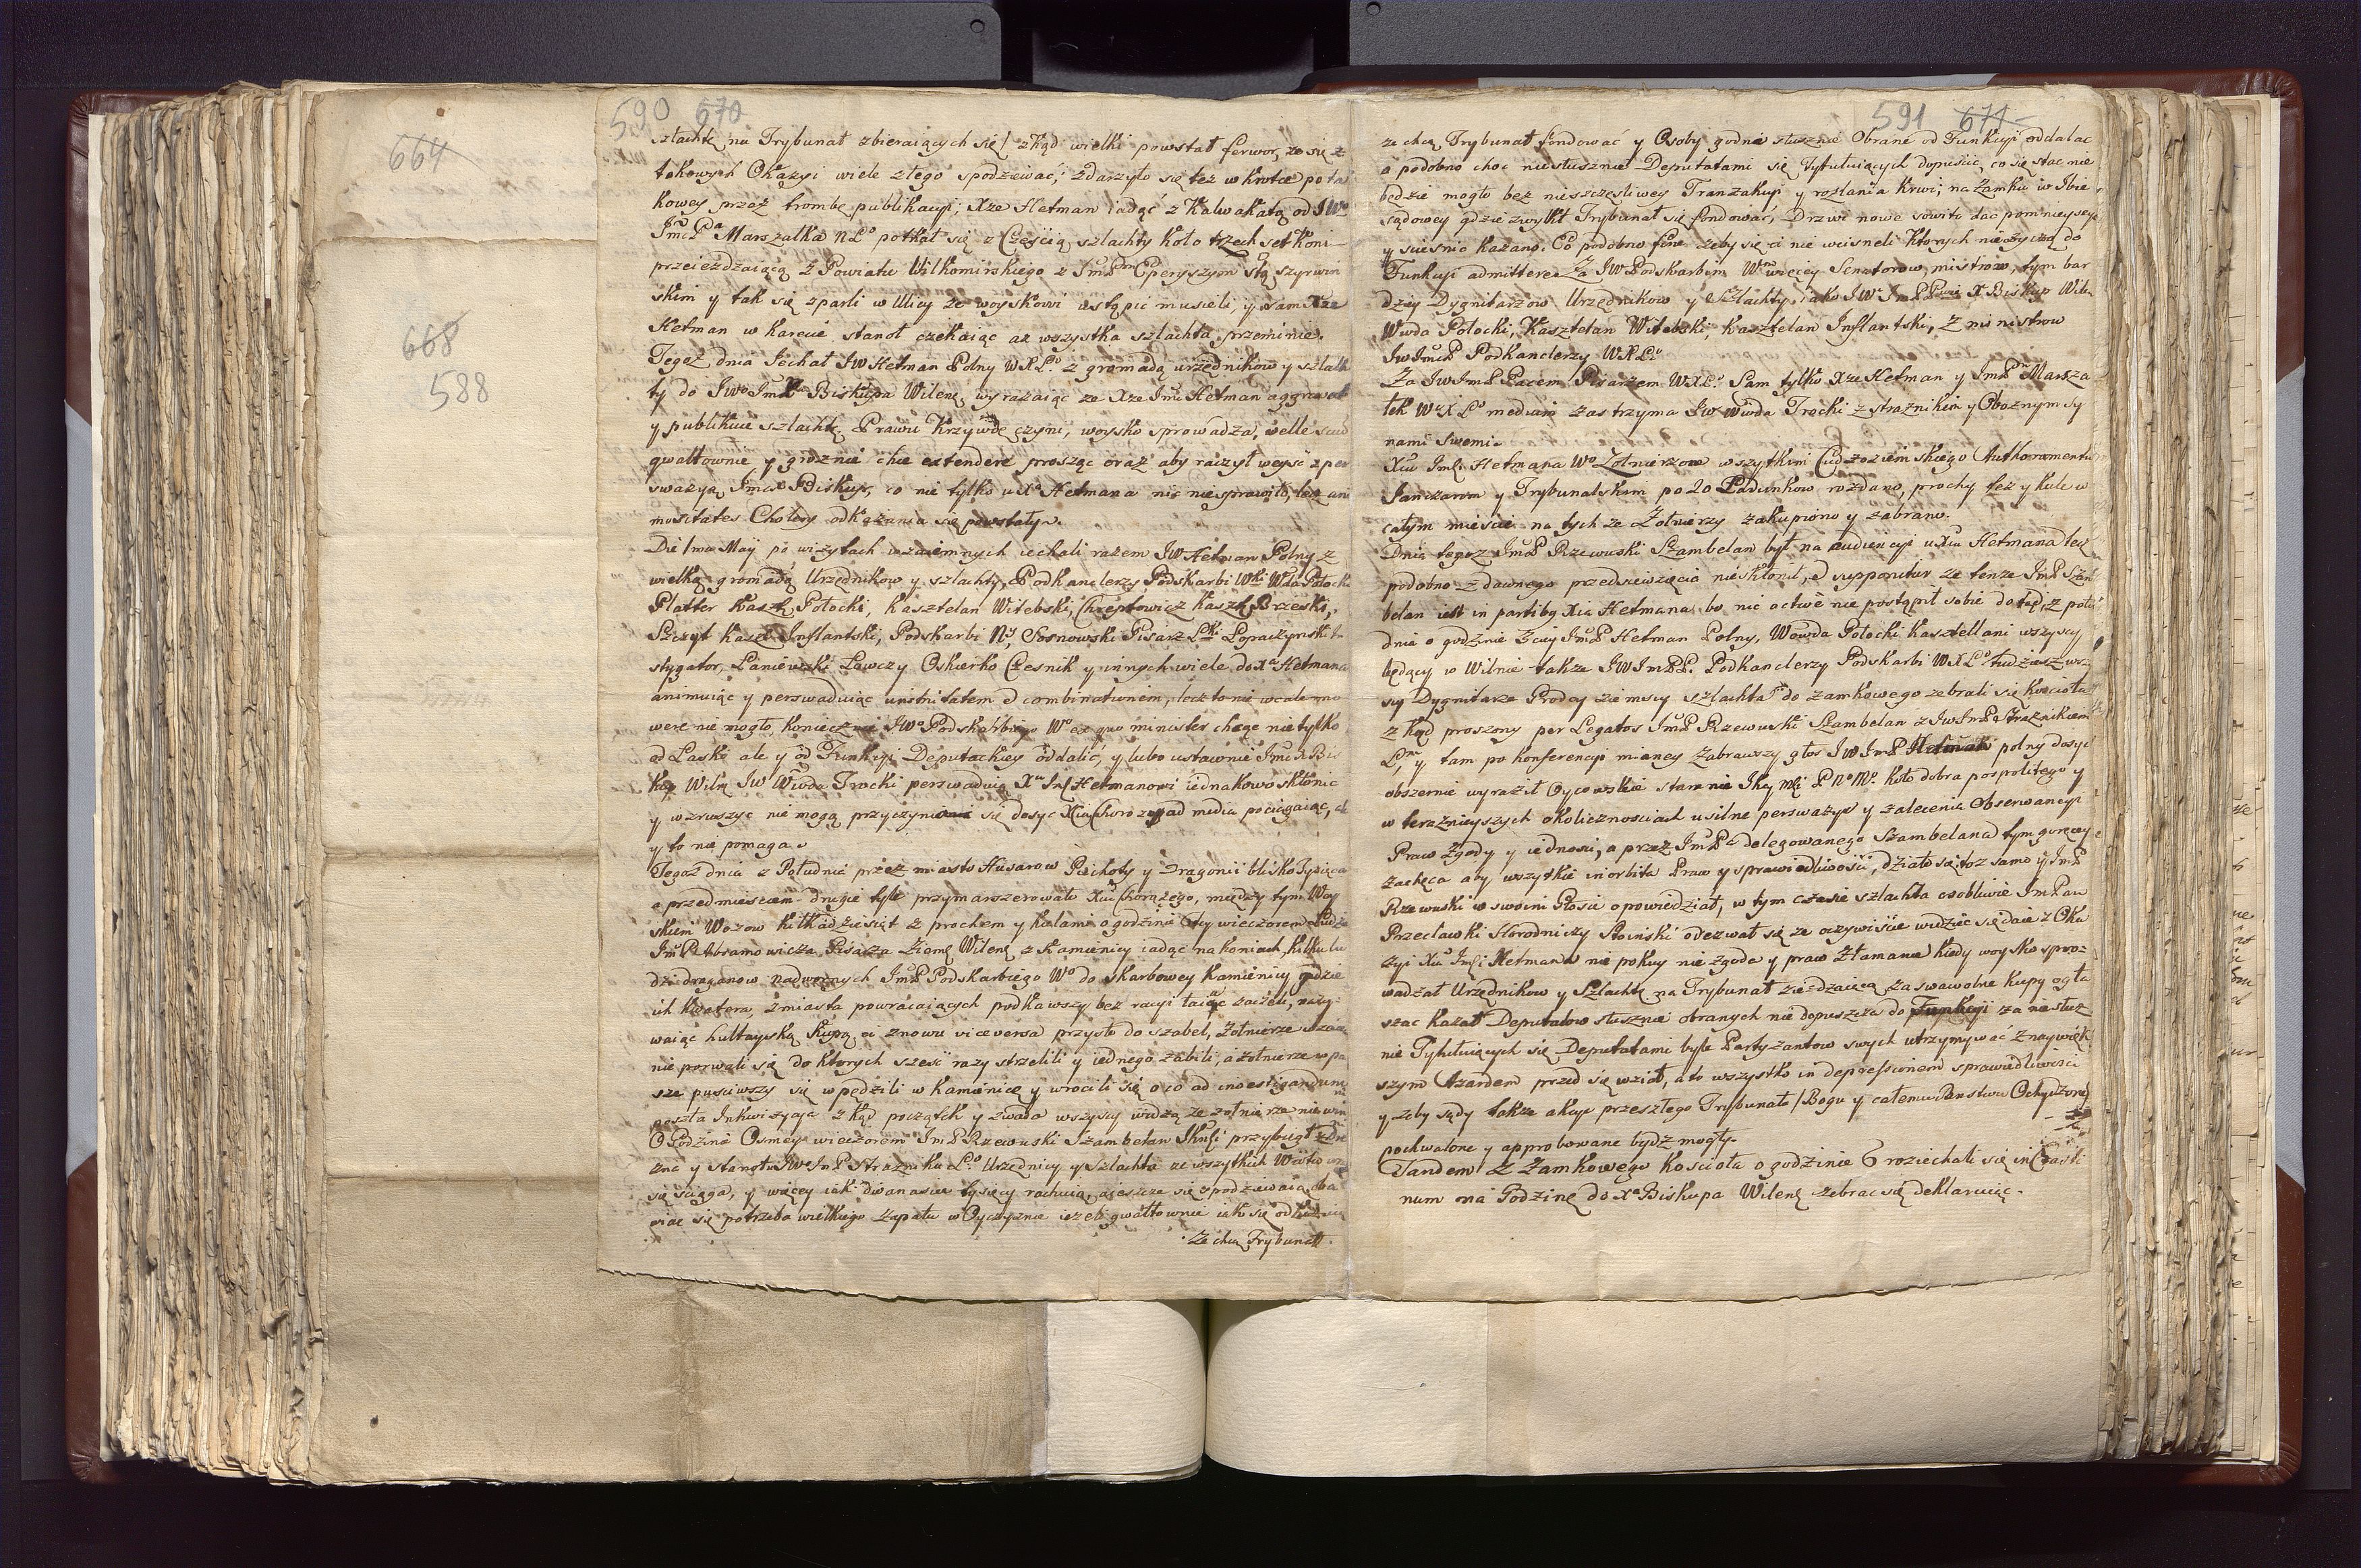 664
668
588
590 670
szlachtę na Trybunał zbieraiących się/ zkąd wielki powstał ferwor, że się z
takowych Okazyi wiele złego spodziewać; zdarzyło się też wkrotce po ta
kowey przez trombę publikacyi; Xże Hetman iadąc z Kalwakatą od JWo
JmcPa Marszałka NLo potkał się z Częścią szlachty koło trzech set koni
przeieżdzaiącą z Powiatu Wiłkomirskiego z JmPm Eperyszym Stą szyrwin
skim y tak się zparli w Ulicy że woyskowi ustąpić musieli, y sam Xże
Hetman w karecie stanoł czekaiąc aż wszystka szlachta przeminie.
Tegoż dnia Jechał JW Hetman Polny WXLo z gromadą urzędnikow y szlach
ty do JWo JmXa Biskupa Wileńę, wyrażaiąc że Xże Jmć Hetman aggrawat
y publikuie szlachtę, Prawu Krzywdę czyni, woysko sprowadza, velle suum
gwałtownie y groznie chce extendere prosząc oraz aby raczył weyść z per
swazyą JmcX Biskup, co nie tylko u Xa Hetmana nic niesprawiło, lecz ani
mositates Cholery odkazania się powstały.
Die 1ma Maÿ po wizytach wzaiemnych iechali razem JW Hetman Polny z
wielką gromadą Urzędnikow y szlachty, Podkanclerzy Podskarbi Wki Wda Połocki
Platter Kaszt Połocki, Kasztelan Witebski, Chreptowicz Kaszt Brzeski,
Szczyt Kaszt Inflantski, Podskarbi Ny Sosnowski Pisarz Lki Łopaczynski In
stygator, Paniewski Łowczy Oskierko Cześnik y innych wiele do Xa Hetmana
animuiąc y perswaduiąc unitatem et combinationem, lecz to nic wcale mo
were nie mogło, koniecznie JWo Podskarbiego Wo ex quo minister chcąc nie tylko
od Laski ale y od Funkcyi Deputackiey oddalić, y lubo ustawnie JmcX Bi
skup Wilę JW Wwda Trocki perswaduią Xu Jmć Hetmanowi iednakowo skłonic
y wzruszyc nie mogą przyczynia się dosyc Xiu Chorążey ad media pociągaiąc, al
y to nie pomaga.
Tegoż dnia z Południa przez miasto Husarow Piechoty y Dragonii blisko Tysiąca
a przedmieściem drugie tyle przymarszerowało Xiu Chorążego, między tym Woy
skiem Wozow kilkadziesiąt z prochem y kulami o godzinie 6tey wieczorem Ludzie
JmP Abramowicza Pisarza Ziemę Wileńę z Kamienicy iadąc na koniach, kilku lu
dzi draganow nadwornych JmP Podskarbiego Wo do skarbowey Kamienicy gdzie
ich kwatera, z miasta powracaiących podkawszy bez racyi łaiąc zaczeli, nazy
waiąc hultayską kupą, ci znowu viceversa przyszło do szabel, żołnierze
nie porwali się do ktorych sześć razy strzelili y iednego zabili, a żołnierze w pa
sze puściwszy się wpędzili w kamienicę y wrocili się, o co ad investigandum
poszła Inkwizycya zkąd początek y zwada wszyscy widzą że żołnierze niewin
O Godzinie Osmey wieczorem JmP Rzewuski Szambelan JKMci przybiegł z Dre
zna y stanoł u JWo JmP Strażnika Lo Urzędnicy y Szlachta ze wszytkich Wdztw
się sciąga, y więcey iak dwanaście tysięcy rachuią, a ieszcze się spodziewaią, oba
wiac się potrzeba wielkiego zapału w Oyczyznie ieżeli gwałtownie iak się odkazuią
Że chcą Trybunał
591 671
że chcą Trybunał fondować y Osoby godne słusznie Obrane od Funkcyi oddalac
a podobno choc niesłusznie Deputatami się Tytułuiących dopuścic, co się stac nie
będzie mogło bez nieszczęśliwey Tranzakcyi y rozlania krwi; na Zamku w Jzbie
sądowey gdzie zwykł Trybunał się fondować, Drzwi nowe sowito dac pomnieysze
y scieśnic kazano. Co podobno fine żeby się ci nie wcisneli ktorych nieżyczą do
Funkcyi admittere. Za JW Podskarbim Wm więcey Senatorow, ministrow, tym bar
dziey Dygnitarzow Urzędnikow y Szlachty, iako JWo JmPPowie X Biskup Wileń
Wwda Połocki, Kasztelan Witebski, Kasztelan Inflantski, z ministrow
JW JmP Podkanclerzy WXLo
Za JW JmP Pacem Pisarzem WXLo Sam tylko Xże Hetman y JmP Marsza
łek WoXLo mediam zas trzyma JW Wwda Trocki z strażnikiem y Oboznym sy
nami swemi.
Xiu Jmci Hetmana Wo Żołnierzom wszytkim Cudzoziemskiego Authoramentu
Janczarom y Trybunalskim po 20 Ładunkow rozdano, prochy też y kule w
całym mieście na tych że Żołnierzy zakupiono y zabrano.
Dnia tegoż JmP Rzewuski Szambelan był na audiencyi u Xiu Hetmana lecz
podobno z dawnego przedsiewzięcia nieskłonił, et supponitur że tenże JmP Szam
belan iest in partibus Xia Hetmana, bo nic active nie postąpił sobie dotąd, z połu
dnia o godzinie 3ciey JmP Hetman Polny, Wwda Połocki Kasztellani wszyscy
będący w Wilnie także JW JmPP. Podkanclerzy Podskarbi WXLo tudziesz wszy
scy Dygnitarze Prodcy ziemscy szlachta do zamkowego zebrali się kościoła
z kąd proszony per Legatos JmP Rzewuski Szambelan z JW JmP Strażnikiem
Lm y tam po konferencyi mianey zabrawszy głos JW JmP Hetman polny dosyc
obszernie wyraził Oycowskie staranie JKeyMci PNoMo koło dobra pospolitego y
w teraznieyszych okolicznosciach usilne perswazye y zalecenie Obserwancyi
Praw Zgody y iednosci, a przez JmPa delegowanego Szambelana tym goręcey
zachęca aby wszytkie in orbita Praw y sprawiedliwości, działo się, toż samo y JmP
Rzewuski w swoim Głosie opowiedział, w tym czasie szlachta osobliwie JmPan
Przecławski Horodniczy Słoniński odezwał się że oczywiście widzieć się daie z Oka
zyi Xiu Jmci Hetmana nie pokuy nie zgoda y praw złamanie kiedy woysko spro
wadzał Urzędnikow y Szlachtę na Trybunał zieżdzaiącą za swawolne kupy ogła
szac kazał Deputatow słusznie obranych nie dopuszcza do Funkcyi za niesłusz
nie Tytułuiących się Deputatami byle Partyzantow swych utrzymywać z naywięk
szym Azardem przed się wzioł, a to wszystko in depressionem sprawiedliwosci
y żeby sądy także akcye przeszłego Trybunału /Bogu y całemu Panstwu Ochydzone/
pochwalone y approbowane bydz mogły.
Tandem z Zamkowego kościoła o godzinie 6 roziechali się in Crasti
num na Godzinę do Xa Biskupa Wileńę zebrac się deklaruiąc.